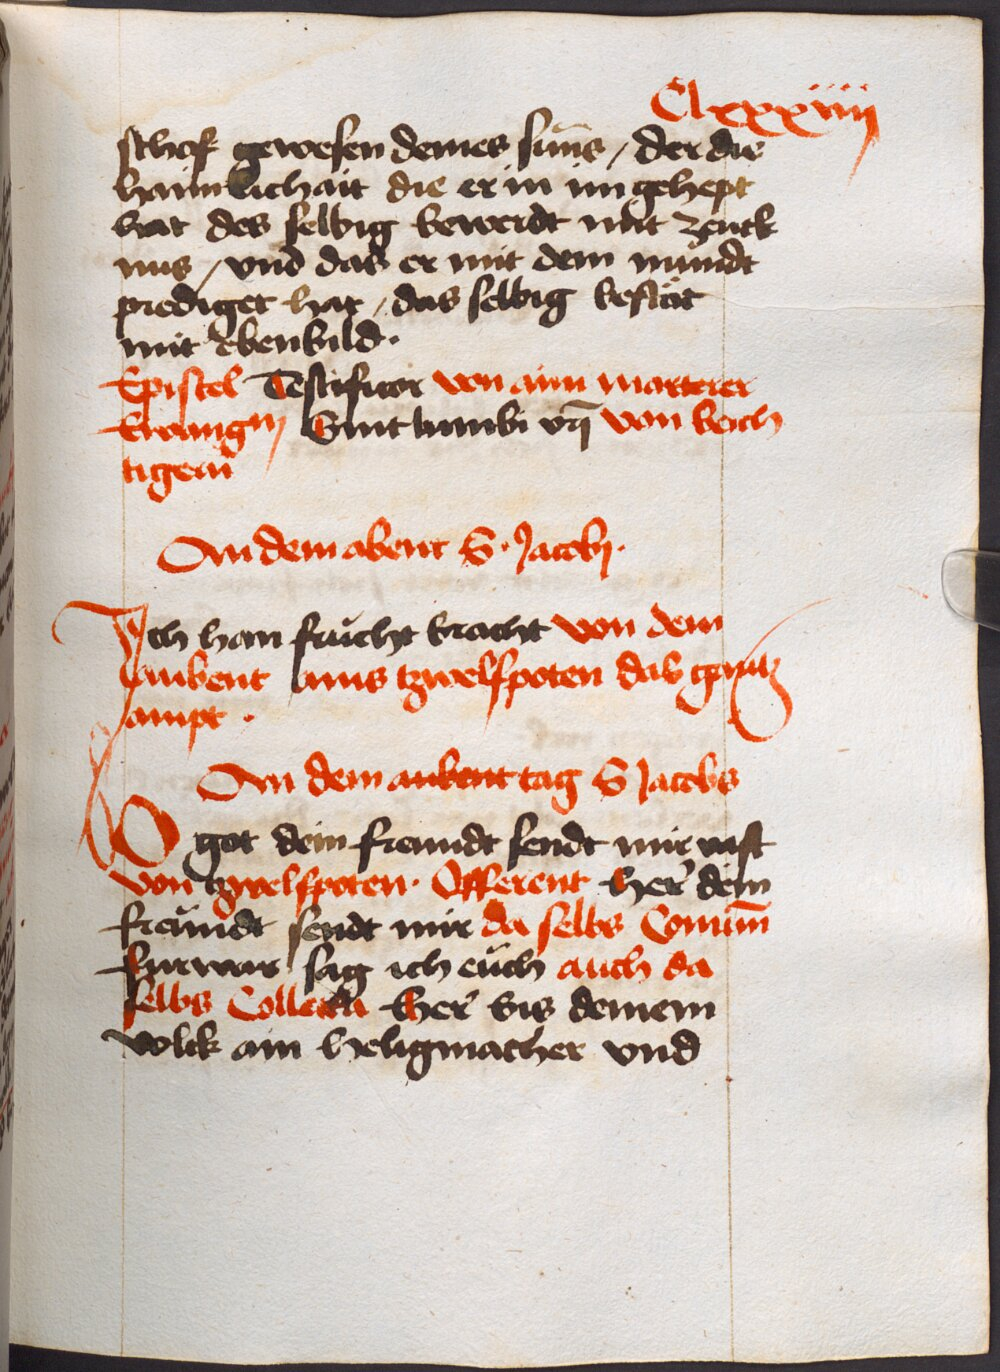 Clxxxiiij
schof gewesen deines sūns / der die
haimlichait die er in im gehept
hat des selbig bewerdt mit zeuck
nus / vnd das er mit dem mundt
prediget hat / das selbig bestät
mit ebenbild.
Epistel Testificor von aim marterer
Ewangy Sint lumbi vrī von beich
tigern
An dem abent S. Jacobj.
Ich han frücht bracht von dem
aubent ains tzwelfpoten das gantz
ampt.
An dem aubent tag S Jacobs
O got dein freundt sendt mir vast
von tzwelfpoten. Offerent Her dein
freündt sendt mir da selbs Comūm
furwar sag ich eüch auch da
selbs Collecta Her bis deinem
volck ain heligmacher vnd